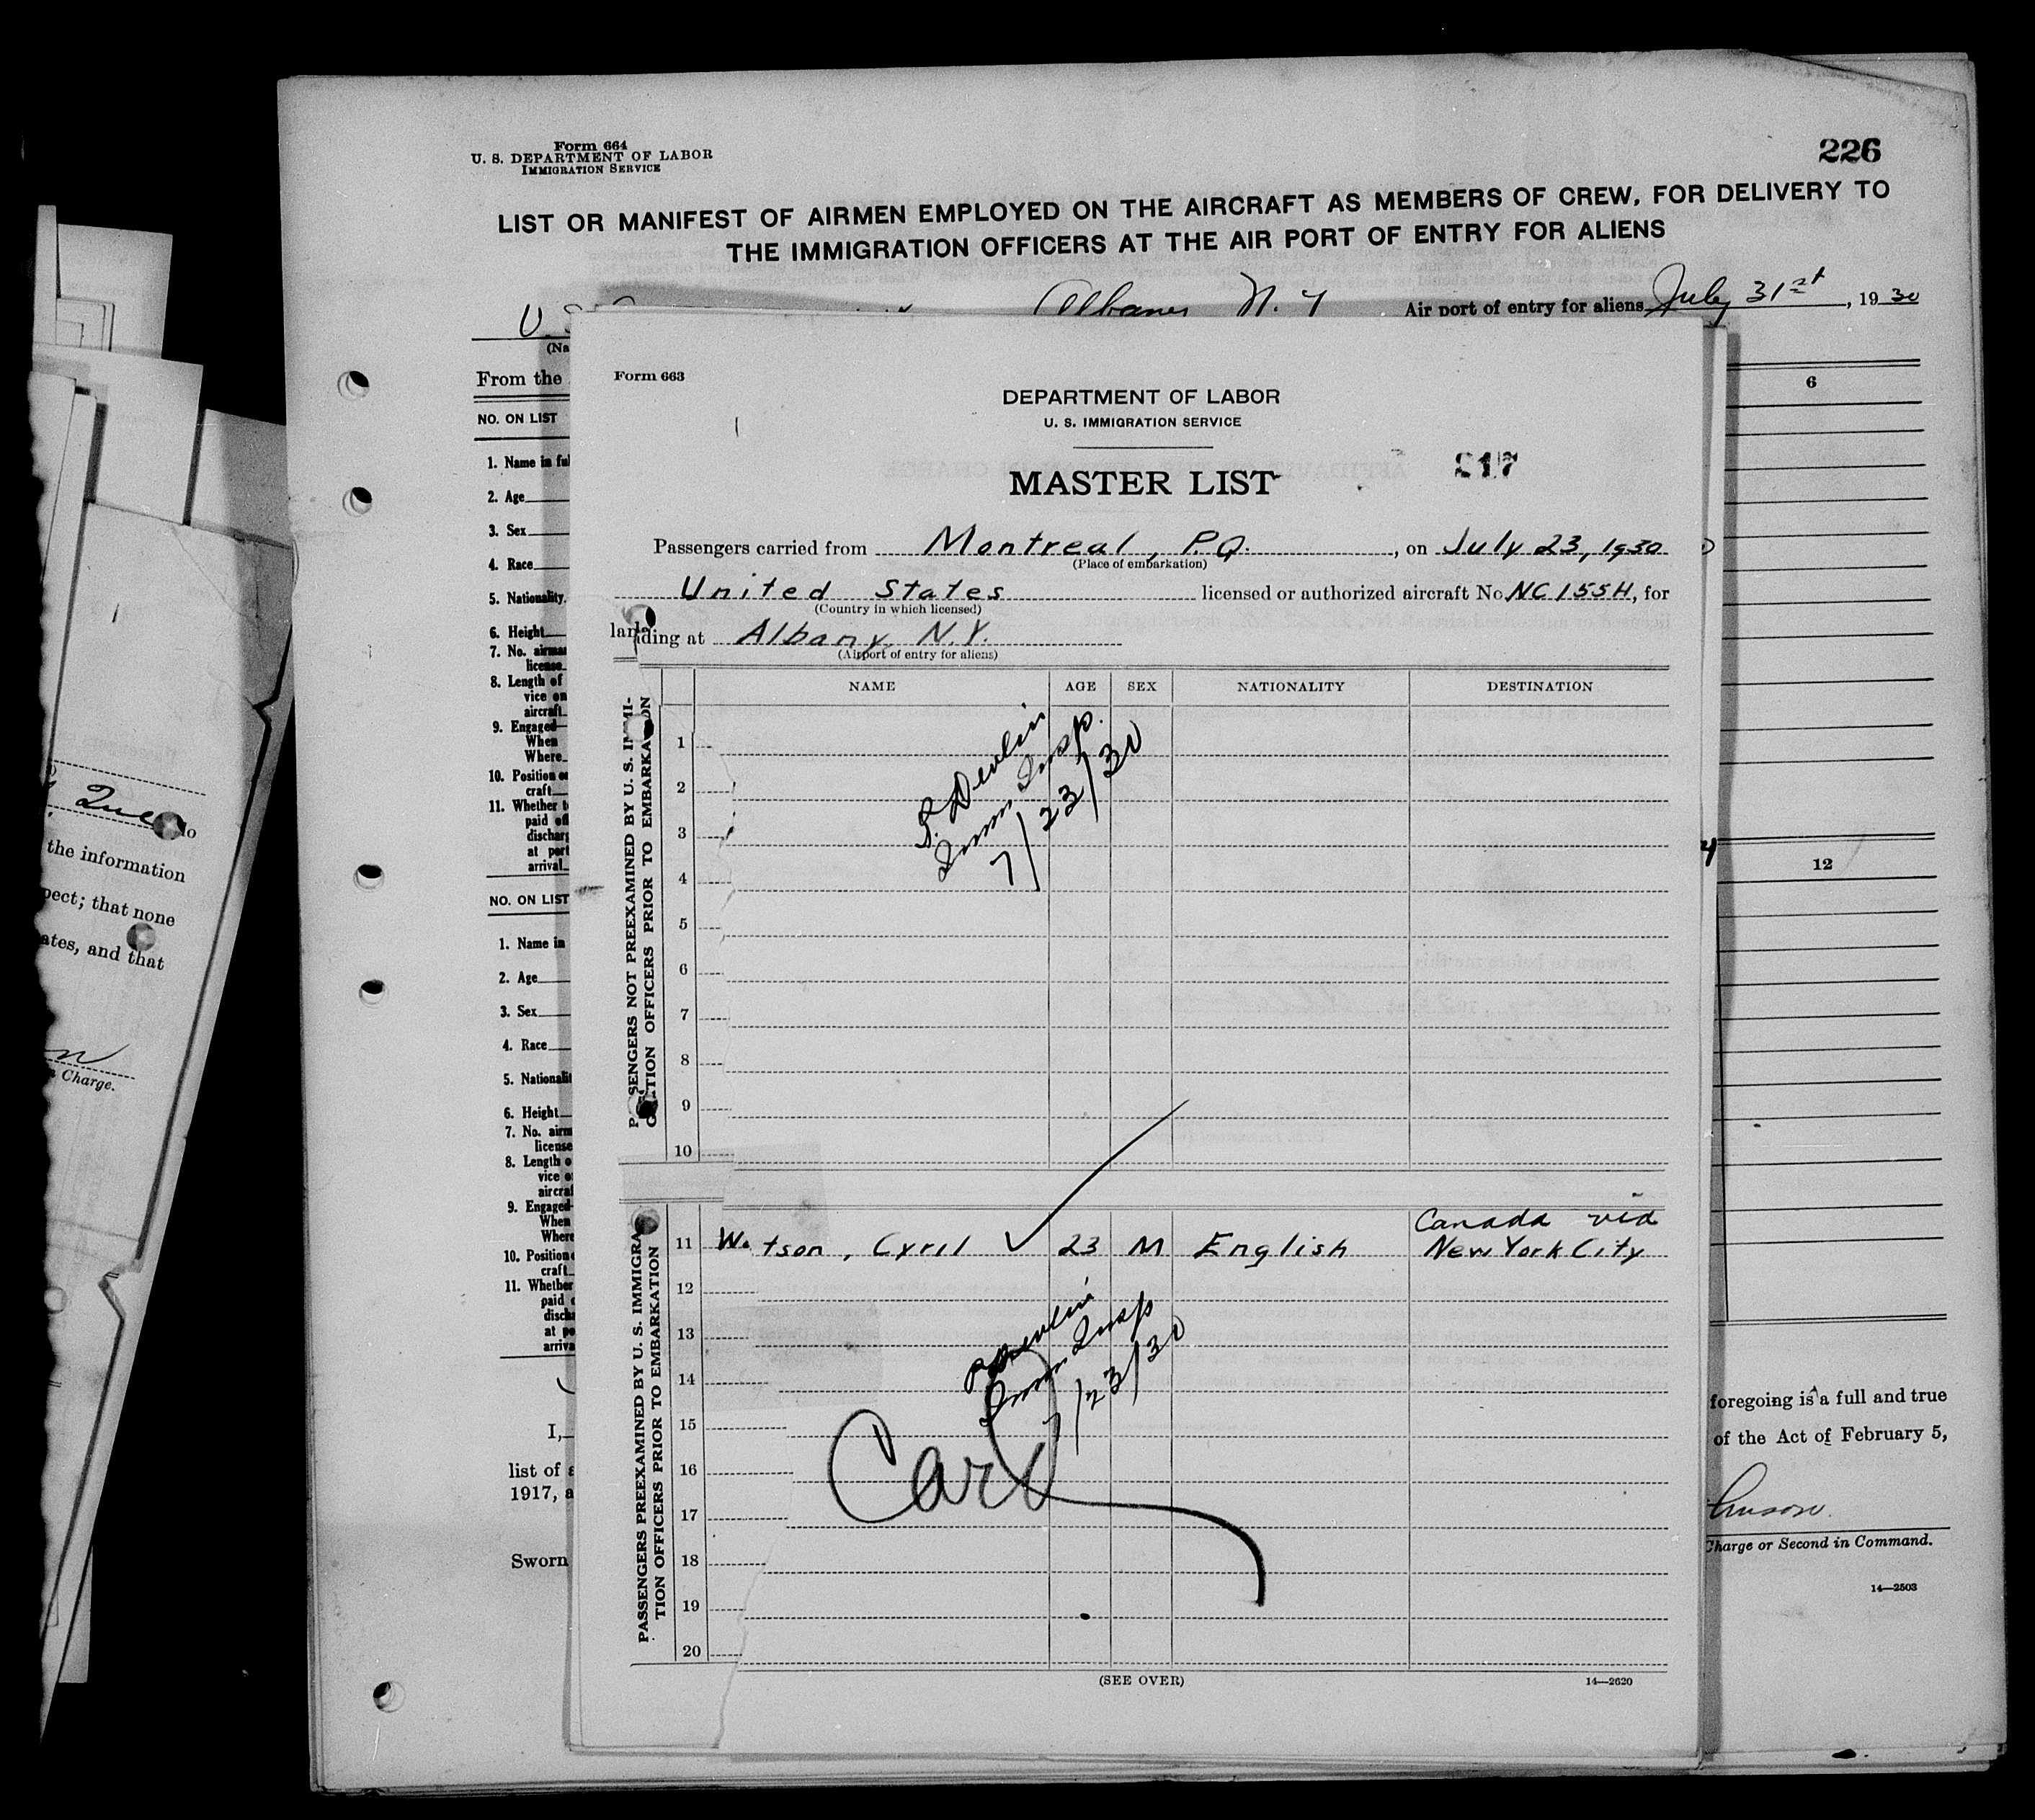 Form 664
U. S. DEPARTMENT OF LABOR
IMMIGRATION SERVICE
226
LIST OR MANIFEST OF AIRMEN EMPLOYED ON THE AIRCRAFT AS MEMBERS OF CREW, FOR DELIVERY TO
THE IMMIGRATION OFFICERS AT THE AIR PORT OF ENTRY FOR ALIENS
Albany N. Y Air port of entry for aliens July 31st, 1930
(Na
From the
6
NO. ON LIST
1. Name in ful
2. Age
3. Sex
4. Race
5. Nationality
6. Height
7. No. airman
license
8. Length of
vice on
aircraft
9. Engaged
When
Where
10. Position or
craft
11. Whether t
paid off
discharg
at port
arrival
12
NO. ON LIST
1. Name in
2. Age
3. Sex
4. Race
5. Nationalit
6. Height
7. No. airm
license
8. Length o
vice o
aircraf
9. Engaged
When
Where
10. Position
craft
11. Whether
paid
disch
at po
arriva
I,
foregoing is a full and true
list of
of the Act of February 5,
1917, a
Sworn
Charge or Second in Command.
14—2503
Form 663
DEPARTMENT OF LABOR
U. S. IMMIGRATION SERVICE
MASTER LIST
217
Passengers carried from Montreal, P.Q. , on July 23, 1930
(Place of embarkation)
United States licensed or authorized aircraft No. NC155H, for
(Country in which licensed)
landing at Albany, N.Y.
(Airport of entry for aliens)
NAME AGE SEX NATIONALITY DESTINATION
PASSENGERS NOT PREEXAMINED BY U. S. IMMI-
GRATION OFFICERS PRIOR TO EMBARKATION
1
2
3
4
5
6
7
8
9
10
Devlin
Imm Insp.
7/23/30
PASSENGERS PREEXAMINED BY U. S. IMMIGRA-
TION OFFICERS PRIOR TO EMBARKATION
Canada via
11 W. tson, Cyril 23 M English New York City
12
13
14
15
16
17
18
19
20
Devlin
Imm Insp
7/23/30
(SEE OVER)
14—2620
Que
to
the information
pect; that none
ates, and that
Charge.